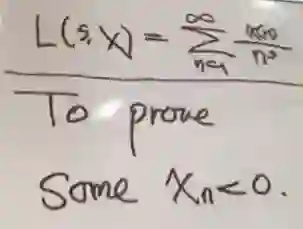 L(s, X) = ∑_{n=1}^{∞} X(n)/n^s
To prove
Some X_n<0.